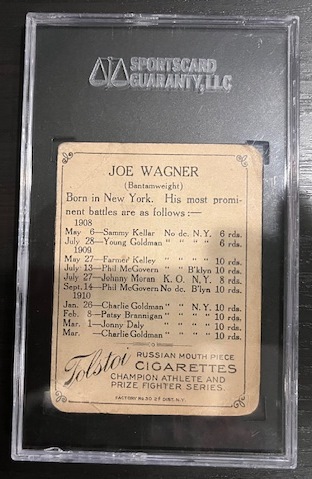 SPORTSCARD
GUARANTY, LLC
JOE WAGNER
(Bantamweight)
Born in New York. His most promi-
nent battles are as follows:—
1908
May 6—Sammy Kellar No dc. N.Y. 6 rds.
July 28—Young Goldman " " " " 6 rds.
1909
May 27—Farmer Kelley " " " " 10 rds.
July 13—Phil McGovern " " B'klyn 10 rds.
July 27—Johnny Moran K. O. N.Y. 8 rds.
Sept. 14—Phil McGovern No dc. B'lyn 10 rds.
1910
Jan. 26—Charlie Goldman " " N.Y. 10 rds.
Feb. 8—Patsy Brannigan " " " " 10 rds.
Mar. 1—Jonny Daly " " " " 10 rds.
Mar. —Charlie Goldman " " " " 10 rds.
Tolstoi
RUSSIAN MOUTH PIECE
CIGARETTES
CHAMPION ATHLETE AND
PRIZE FIGHTER SERIES.
FACTORY No. 30 2d DIST. N.Y.